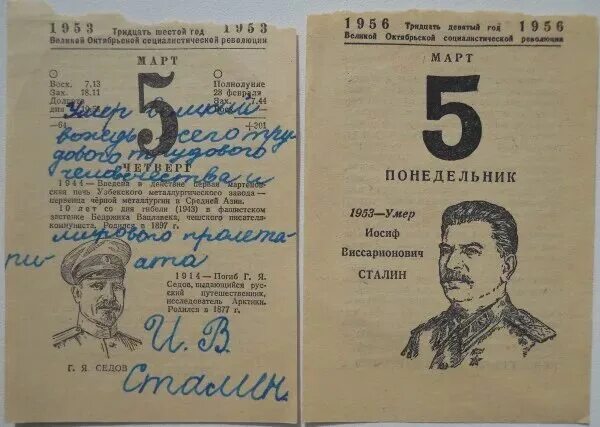 1953 Тридцать шестой год 1953
Великой Октябрьской социалистической революции
МАРТ
Восх. 7.13
Зах. 18.11
Долгота
дня
—64
5
Полнолуние
28 февраля
Восх. 7.44
Зах.
+301
ЧЕТВЕРГ
1944—Введена в действие первая мартеновская
печь Узбекского металлургического завода—
первенца чёрной металлургии в Средней Азии.
10 лет со дня гибели (1943) в фашистском
застенке Бедржиха Вацлавека, чешского писателя-
коммуниста. Родился в 1897 г.
1914—Погиб Г. Я.
Седов, выдающийся русский
путешественник,
исследователь Арктики.
Родился в 1877 г.
Г. Я. СЕДОВ
Умер великий
вождь всего тру
дового трудового
человечества и
мирового пролета-
риата
И. В.
Сталин.
1956 Тридцать девятый год 1956
Великой Октябрьской социалистической революции
МАРТ
5
ПОНЕДЕЛЬНИК
1953—Умер
Иосиф
Виссарионович
СТАЛИН